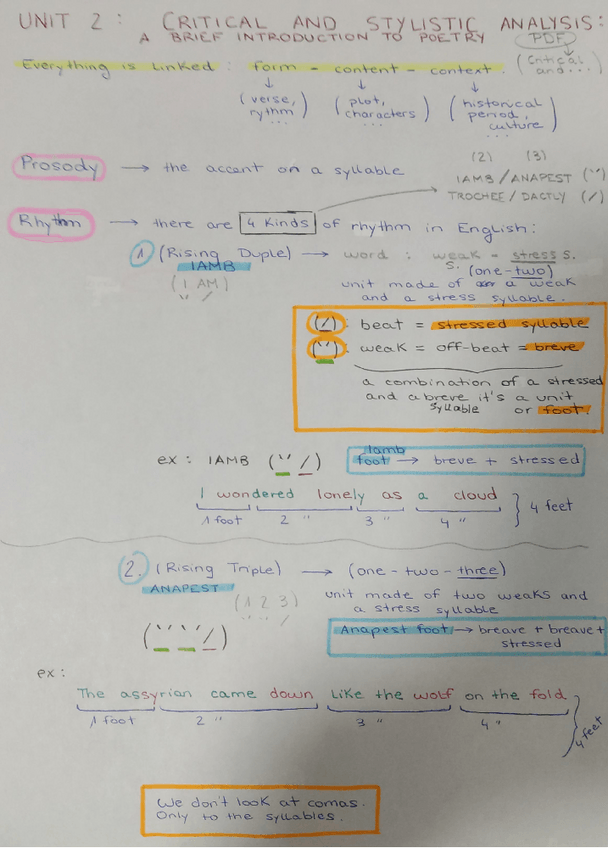 UNIT 2: CRITICAL AND STYLISTIC ANALYSIS:
A BRIEF INTRODUCTION TO POETRY (PDF)
Everything is Linked: form - content - context. (Critical and...)
(verse, rythm ...) (plot, characters ...) (historical period, culture ...)
Prosody → the accent on a syllable
(2) (3)
IAMB/ANAPEST (˘˘)
TROCHEE/DACTLY (/)
Rhythm → there are 4 kinds of rhythm in English:
1 (Rising Duple) → word: weak - stress s.
IAMB s. (one-two)
(I AM) unit made of a weak
˘ / and a stress syllable.
(/): beat = stressed syllable
(˘): weak = off-beat = breve
a combination of a stressed
and a breve it's a unit
syllable or foot.
ex: IAMB (˘ /) Iamb foot → breve + stressed
I wondered lonely as a cloud } 4 feet
1 foot 2 " 3 " 4 "
2. (Rising Triple) → (one-two-three)
ANAPEST unit made of two weaks and
(1 2 3) a stress syllable
˘ ˘ /
(˘ ˘ /) Anapest foot → breave + breave +
stressed
ex:
The assyrian came down like the wolf on the fold
1 foot 2 " 3 " 4 " 4 feet
We don't look at comas.
Only to the syllables.